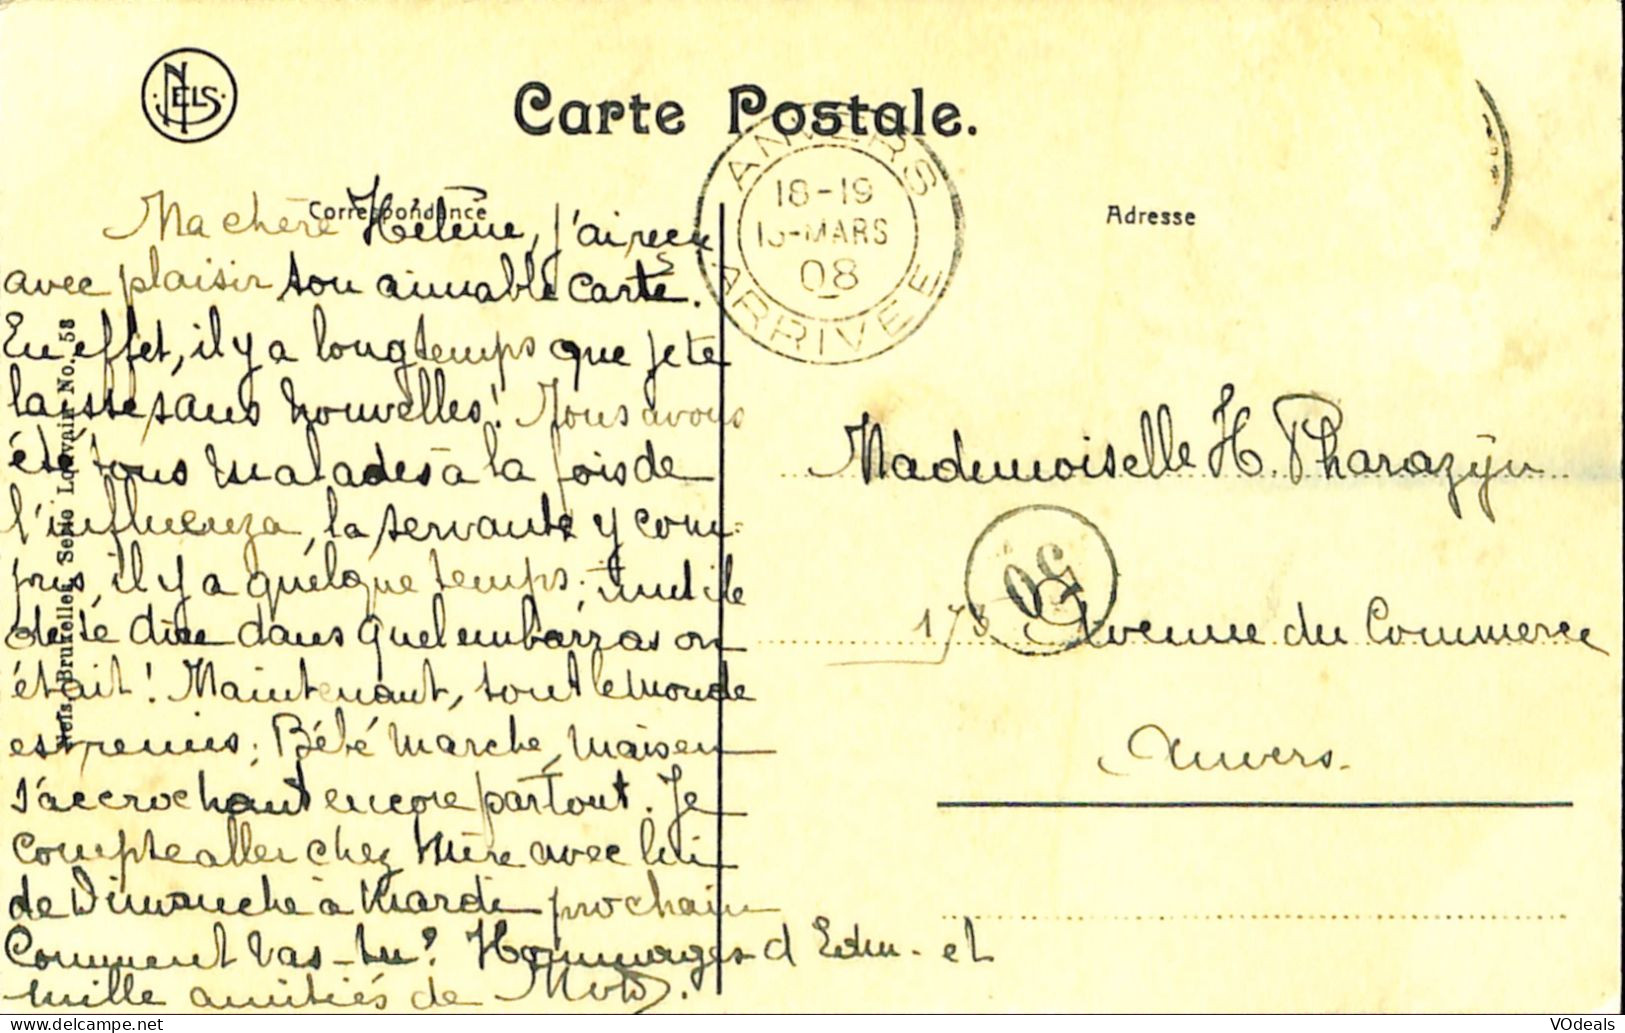 NELS
Carte Postale.
ANVERS
18-19
MARS
08
ARRIVEE
Correspondance
Adresse
Ma chère Hélène, j'ai reçu
avec plaisir ton aimable carte.
En effet, il y a longtemps que je te
laisse sans nouvelles! Nous avons
été tous malades à la fois de
l'influenza, la servante y com-
pris, il y a quelque temps; inutile
de te dire dans quel embarras on
était! Maintenant, tout le monde
est remis; Bébé marche, mais en
s'accrochant encore partout. Je
compte aller chez Mère avec lui
de Dimanche à Mardi prochain
Comment vas-tu? Hommages d Edm. et
mille amitiés de
Nels, Bruxelles, Serie Louvain No. 58
Mademoiselle H. Pharazyn
50
173 Avenue du Commerce
Anvers.
VOdeals